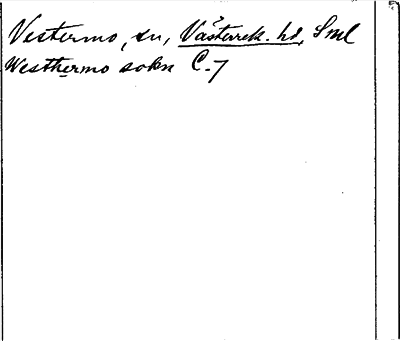 Vestermo, sn, Västerrek. hd, Sml
Westhermo sokn C. 7